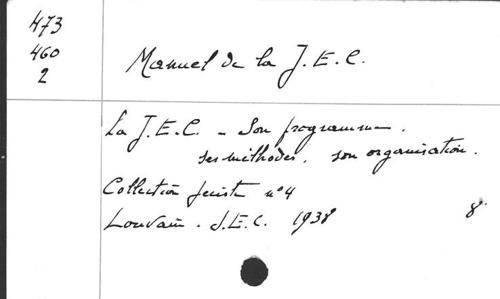 473
460
2
Manuel de la J.E.C.
La J.E.C. - Son programme.
ses méthodes, son organisation.
Collection jéciste n°4
Louvain. J.E.C. 1938 8°